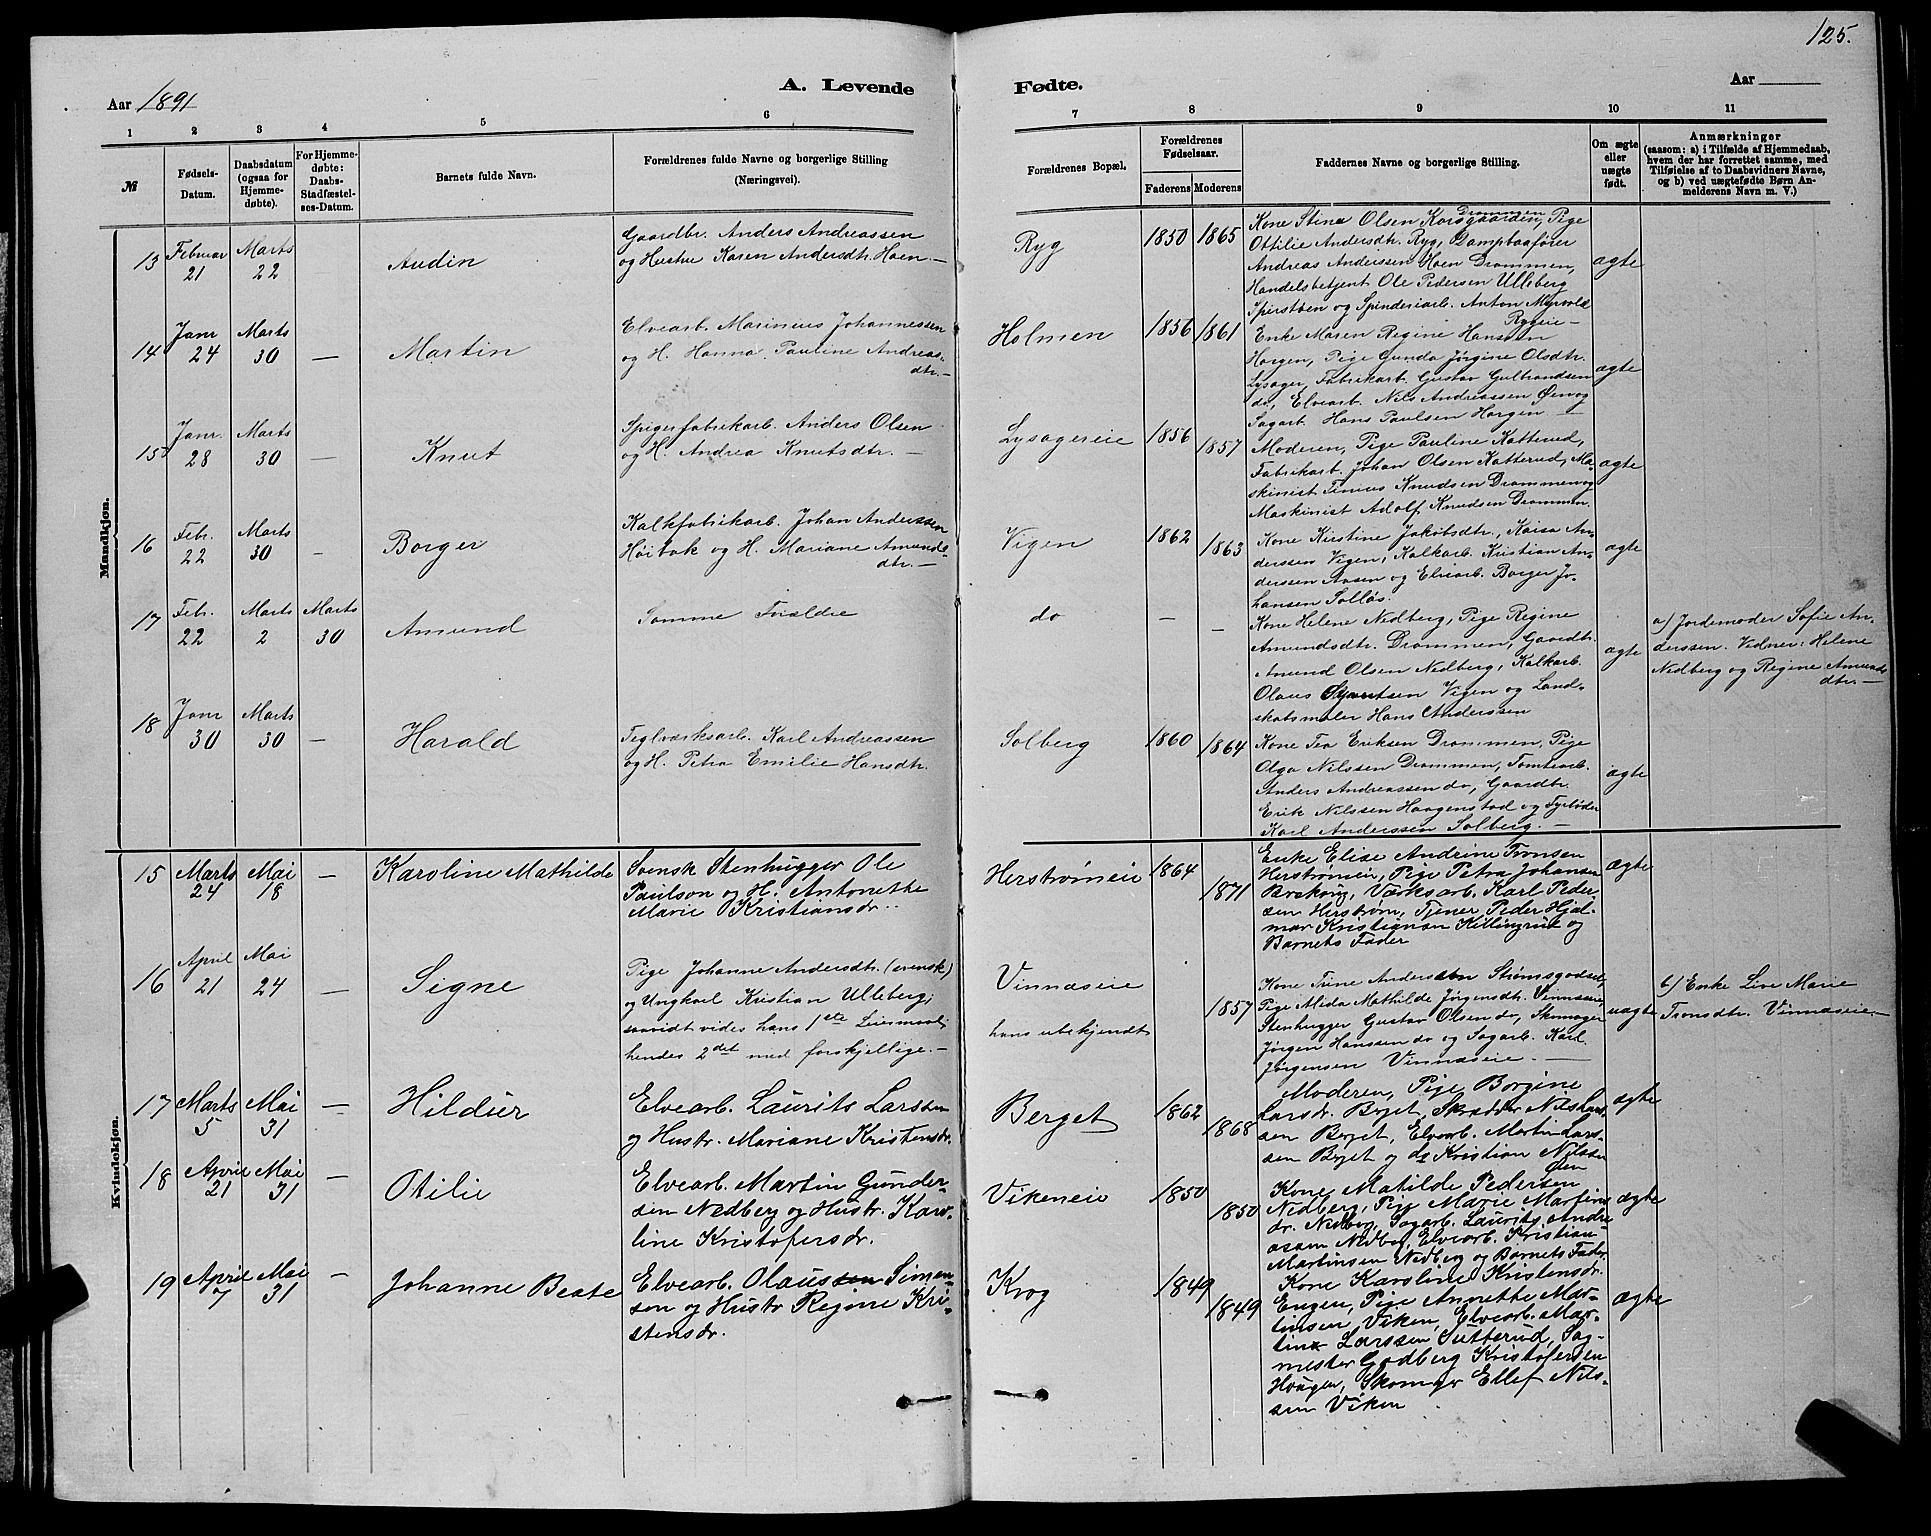 125.
Aar 1891
A. Levende Fødte.
Aar
1 2 3 4 5 6 7 8 9 10 11
№
Fødsels-Datum.
Daabsdatum (ogsaa for Hjemme-døbte).
For Hjemme-døbte: Daabs-Stadfæstel-ses-Datum.
Barnets fulde Navn.
Forældrenes fulde Navne og borgerlige Stilling (Næringsvei).
Forældrenes Bopæl.
Forældrenes Fødselsaar.
Faderens Moderens
Faddernes Navne og borgerlige Stilling.
Om ægte eller uægte født.
Anmærkninger
(saasom: a) i Tilfælde af Hjemmedaab, hvem der har forrettet samme, med Tilføielse af to Daabsvidners Navne, og b) ved uægtefødte Børn An-melderens Navn m. V.)
Mandkjøn.
13 Februar 21 Marts 22 Audin
Gaardbr. Anders Andreassen
og Hustru Karen Andersdtr. Hoen.—
Ryg 1850 1865
Kone Stina Olsen Korsgaarden, Drammen, Pige
Ottilie Andersdtr. Ryg, Dampbaafører
Andreas Anderssen Hoen Drammen,
Handelsbetjent Ole Pedersen Ulleberg
og Spinderiarb. Anton Myrvold
Rygeie—
ægte
14 Janr 24 Marts 30 — Martin
Elvearb. Marinius Johannessen
og H. Hanna Pauline Andreas-
dtr.—
Holmen 1856 1861
Enke Maren Regine Hanssen
Horgen, Pige Gunda Jørgine Olsdtr.
Lysager, Fabrikarb. Gustav Gulbrandsen
do, Elvearb. Nils Andreassen Øen og
Sagarb. Hans Paulsen Horgen.—
ægte
15 Janr. 28 Marts 30 — Knut
Spigerfabrikarb. Anders Olsen
og H. Andrea Knutsdtr.—
Lysagereie 1856 1857
Moderen, Pige Pauline Katterud,
Fabrikarb. Johan Olsen Katterud, Ma-
skinist Tinius Knudsen Drammen og
Maskinist Adolf Knudsen Drammen.
ægte
16 Febr. 22 Marts 30 — Borger
Kalkfabrikarb. Johan Anderssen
Høibak og H. Mariane Amunds-
dtr.—
Vigen 1862 1863
Kone Kirstine Jakobsdtr., Kaisa An-
derssen Vigen, Kalkarb. Kristian An-
derssen Aasen og Elvearb. Borger Jo-
hansen Solløs.
ægte
17 Febr. 22 Marts 2 Marts 30 Amund
Samme Forældre
do — —
Kone Helene Nedberg, Pige Regine
Amundsdtr. Drammen, Gaardbr.
Amund Olsen Nedberg, Kalkarb.
Olaus Syvertsen Vigen og Land-
skabsmaler Hans Anderssen
ægte
a) Jordemoder Sofie An-
derssen. Vidner: Helene
Nedberg og Regine Amunds
dtr.—
18 Janr 30 Marts 30 — Harald
Teglværksarb. Karl Andreassen
og H. Petra Emilie Hansdtr.
Solberg 1860 1864
Kone Tea Eriksen Drammen, Pige
Olga Nilssen Drammen, Tomtearb.
Anders Andreassen do, Gaardbr.
Erik Nilssen Haagenstad og Fyrbøder
Karl Anderssen Solberg.—
ægte
Kvindekjøn.
15 Marts 24 Mai 18 — Karoline Mathilde
Svensk Stenhugger Ole
Paulson og H. Antonethe
Marie Kristiansdr.
Herstrømeie 1864 1871
Enke Elise Andrine Tronsen
Herstrømeie, Pige Petra Johansen
Brekong, Værksarb. Karl Peder
sen Herstrøm, Tjener Peder Hjal-
mar Kristiansen Killingrud og
Barnets Fader
ægte
16 April 21 Mai 24 — Signe
Pige Johanne Andersdtr. (svensk)
og Ungkarl Kristian Ulleberg,
saavidt vides hans 1ste Leiermaal,
hendes 2det med forskjellige.—
Vinnæseie
hans ubekjendt
1857
Kone Trine Anderssen Strømsgodset,
Pige Alida Mathilde Jørgensdtr. Vinnæseie,
Stenhugger Gustav Olsen do, Skomager
Jørgen Hanssen do og Sagarb. Karl
Jørgensen Vinnæseie.—
uægte
b) Enke Live Marie
Tronsdtr. Vinnæseie—
17 Marts 5 Mai 31 — Hildur
Elvearb. Laurits Larssen
og Hustr. Mariane Kristensdr.
Berget 1862 1868
Moderen, Pige Borgine
Larsdr. Berget, Skrædder Nils Lars
sen Berget, Elvearb. Martin Lars-
sen Berget og do Kristian Nilssen
Øen
ægte
18 April 21 Mai 31 — Otilie
Elvearb. Martin Gunder-
sen Nedberg og Hustr. Karo-
line Kristofersdr.
Vikeneie 1850 1850
Kone Matilde Pedersen
Nedberg, Pige Marie Martins
dr. Nedberg, Sagarb. Laurits Andre
assen Nedberg, Elvearb. Kristian
Martinsen Nedberg og Barnets Fader
ægte
19 April 7 Mai 31 — Johanne Beate
Elvearb. Olaussen Simen-
sen og Hustr Regine Kri-
stensdr.
Krog 1849 1849
Kone Karoline Kristensdr.
Engen, Pige Annette Mar-
tinsen Viken, Elvearb. Mar-
tin Larssen Sutterud, Sag-
mester Godberg Kristofersen
Haugen, Skomager Ellef Nils-
sen Viken
ægte